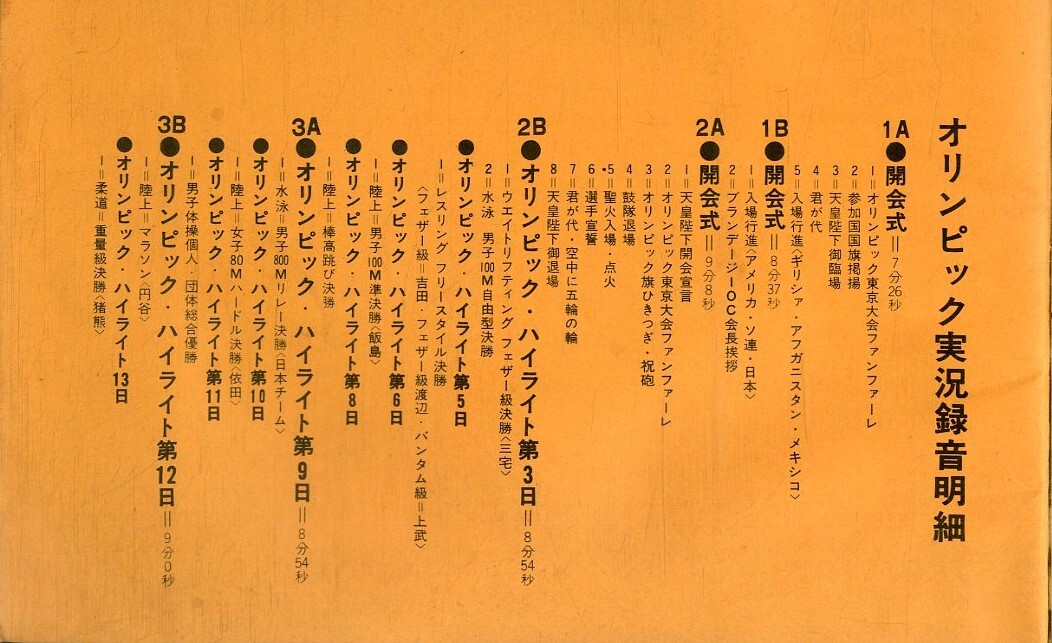 オリンピック実況録音明細
1A
●開会式＝7分26秒
1＝オリンピック東京大会ファンファーレ
2＝参加国国旗掲揚
3＝天皇陛下御臨場
4＝君が代
5＝入場行進〈ギリシァ・アフガニスタン・メキシコ〉
1B
●開会式＝8分37秒
1＝入場行進〈アメリカ・ソ連・日本〉
2＝ブランデージIOC会長挨拶
2A
●開会式＝9分8秒
1＝天皇陛下開会宣言
2＝オリンピック東京大会ファンファーレ
3＝オリンピック旗ひきつぎ・祝砲
4＝鼓隊退場
5＝聖火入場・点火
6＝選手宣誓
7＝君が代・空中に五輪の輪
8＝天皇陛下御退場
2B
●オリンピック・ハイライト第3日＝8分54秒
1＝ウエイトリフティング フェザー級決勝〈三宅〉
2＝水泳 男子100M自由型決勝
●オリンピック・ハイライト第5日
1＝レスリング フリースタイル決勝
〈フェザー級＝吉田・フェザー級渡辺・バンタム級＝上武〉
●オリンピック・ハイライト第6日
1＝陸上＝男子100M準決勝〈飯島〉
●オリンピック・ハイライト第8日
1＝陸上＝棒高跳び決勝
3A
●オリンピック・ハイライト第9日＝8分54秒
1＝水泳＝男子800Mリレー決勝〈日本チーム〉
●オリンピック・ハイライト第10日
1＝陸上＝女子80Mハードル決勝〈依田〉
●オリンピック・ハイライト第11日
1＝男子体操個人・団体総合優勝
3B
●オリンピック・ハイライト第12日＝9分0秒
1＝陸上＝マラソン〈円谷〉
●オリンピック・ハイライト13日
1＝柔道＝重量級決勝〈猪熊〉